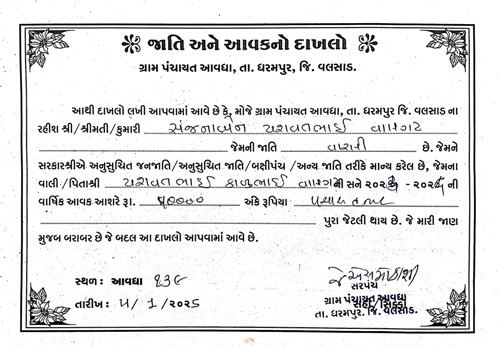 જાતિ અને આવકનો દાખલો
ગ્રામ પંચાયત આવધા, તા. ધરમપુર, જિ. વલસાડ.
આથી દાખલો લખી આપવામાં આવે છે કે, મોજે ગ્રામ પંચાયત આવધા, તા. ધરમપુર જિ. વલસાડ ના
રહીશ શ્રી/શ્રીમતી/કુમારી સંજનાબેન યશવંતભાઈ
જેમની જાતિ વારલી છે. જેમને
સરકારશ્રીએ અનુસુચિત જનજાતિ/અનુસુચિત જાતિ/બક્ષીપંચ /અન્ય જાતિ તરીકે માન્ય કરેલ છે, જેમના
વાલી/પિતાશ્રી યશવંતભાઈ કાળુભાઈ ની સને ની
વાર્ષિક આવક આશરે રૂા. ૫૦૦૦૦ અંકે રૂપિયા પચાસ હજાર
પુરા જેટલી થાય છે. જે મારી જાણ
મુજબ બરાબર છે જે બદલ આ દાખલો આપવામાં આવે છે.
સ્થળ : આવધા ૧૩૯
સરપંચ
તારીખ : ૫/૧/૨૦૨૫
ગ્રામ પંચાયત આવધા
સહી/સિક્કો
તા. ધરમપુર. જિ. વલસાડ.